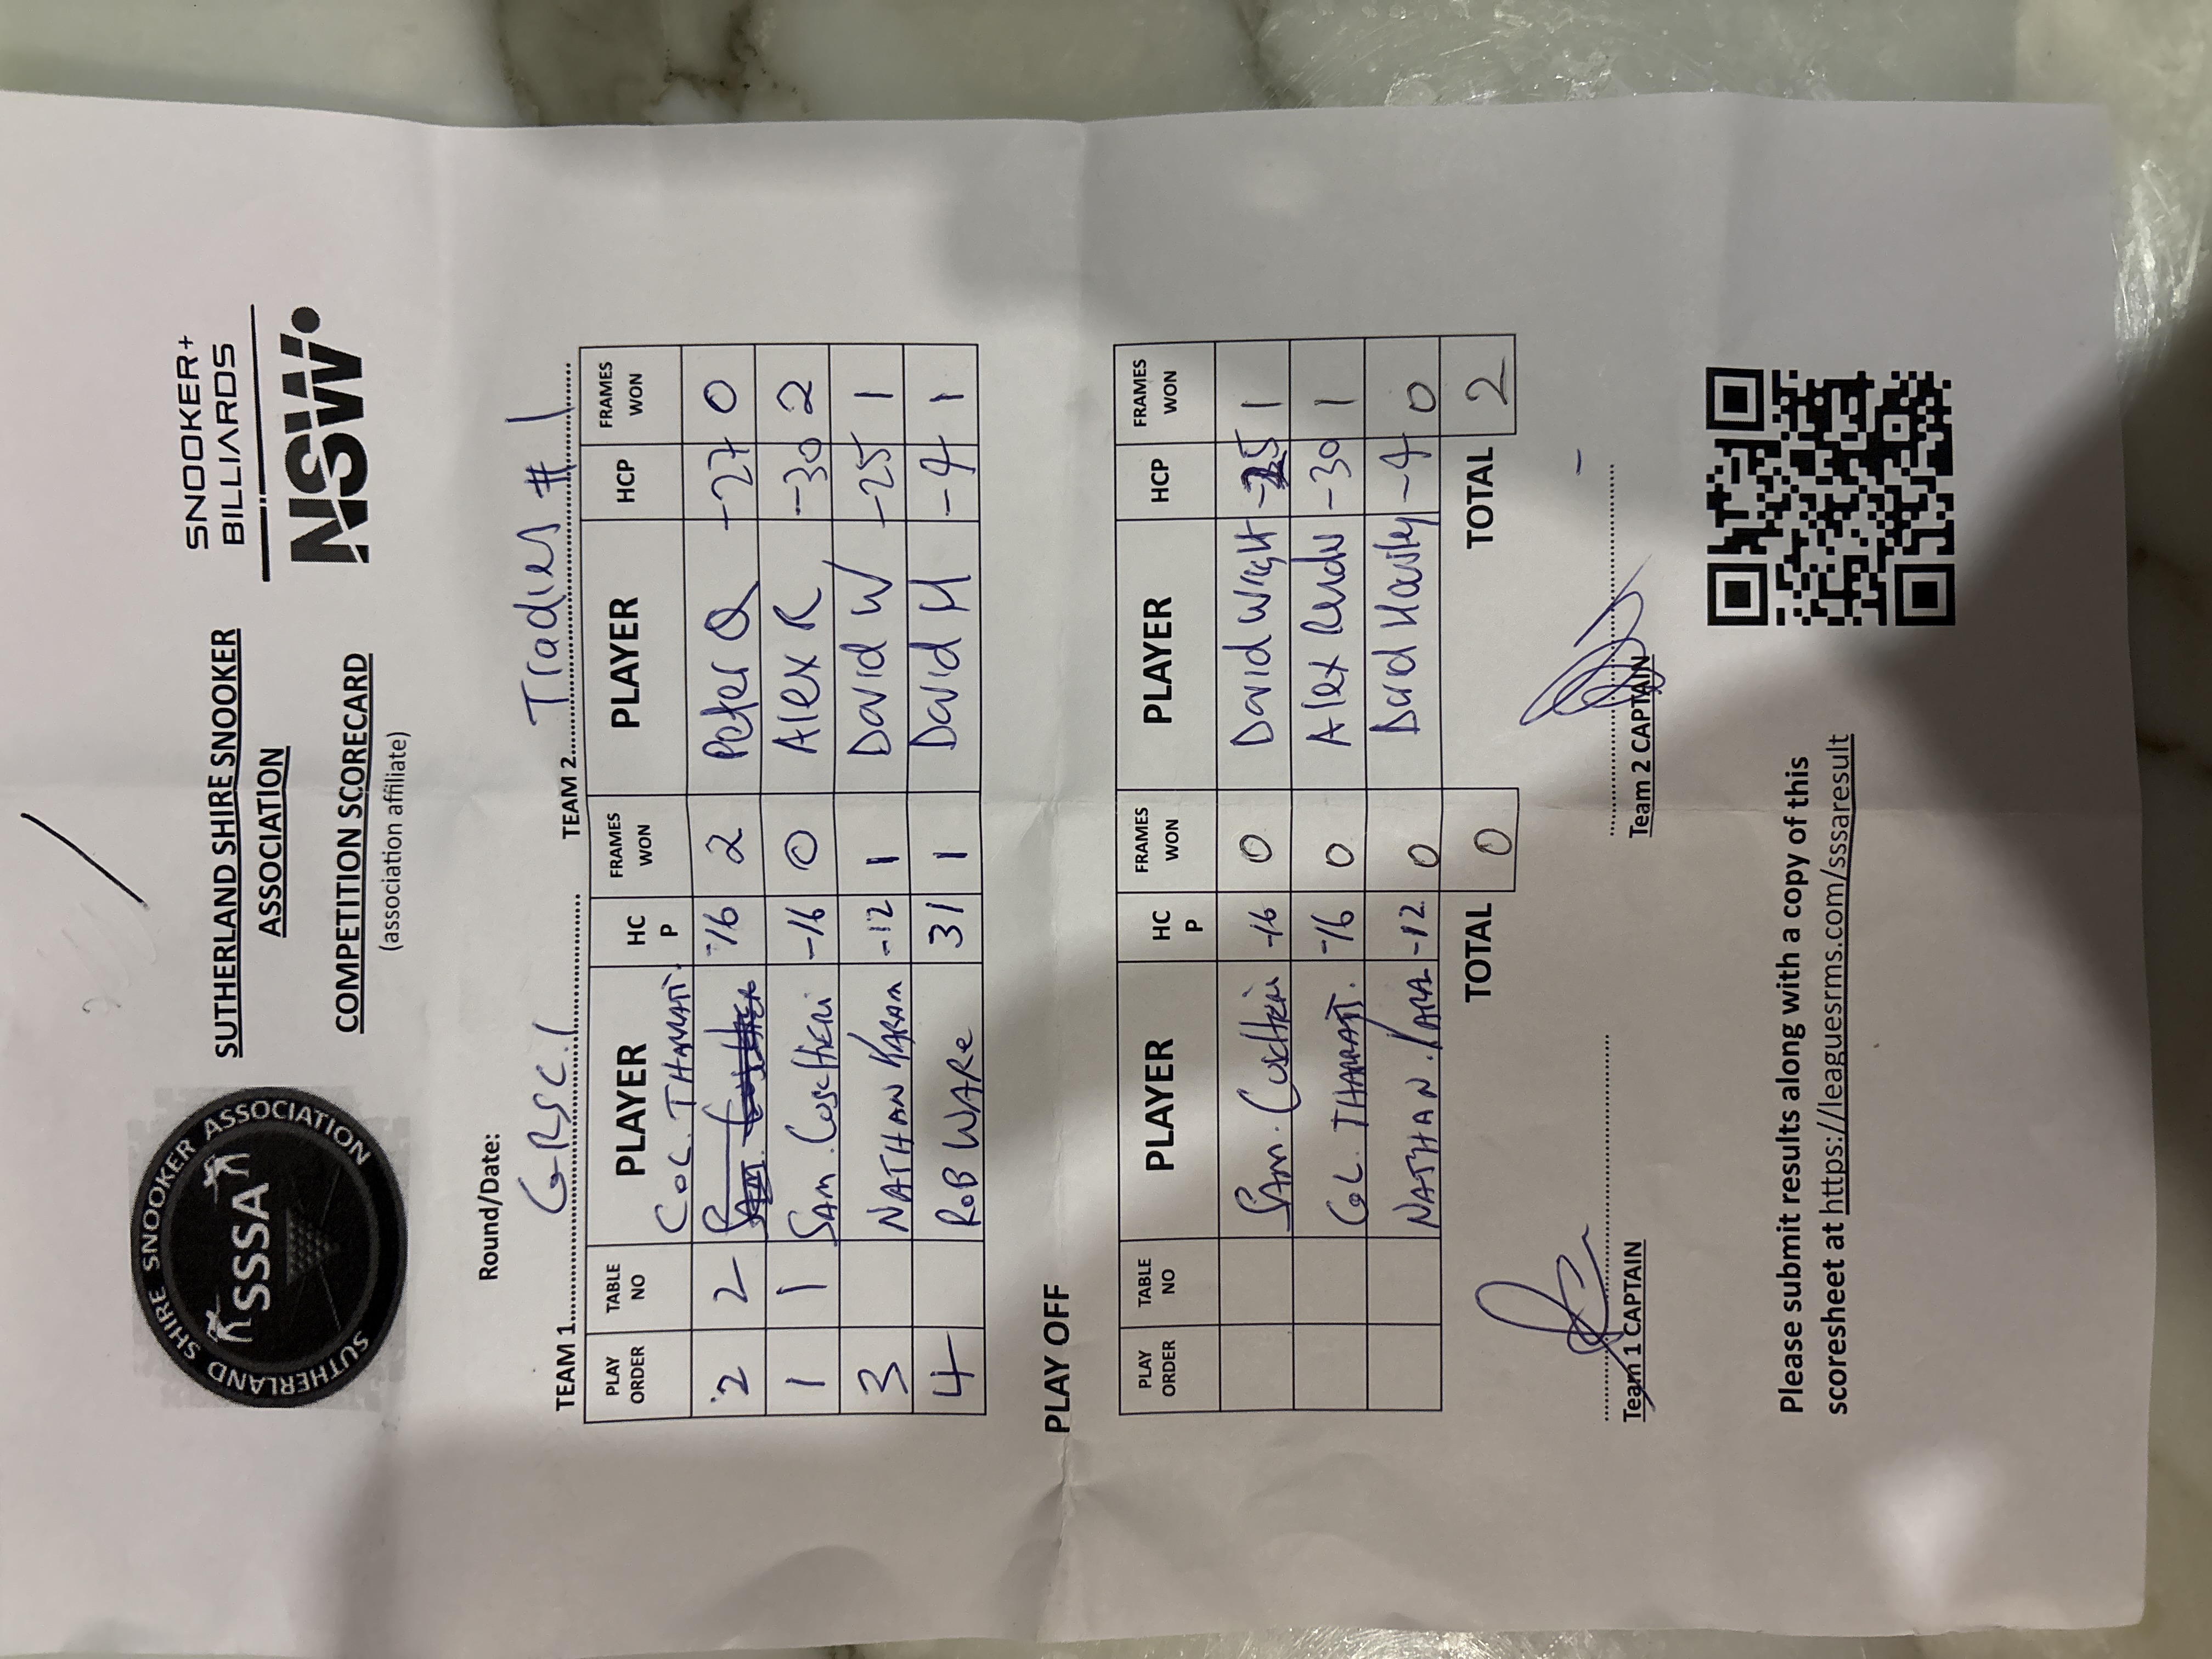 SUTHERLAND SHIRE SNOOKER ASSOCIATION
SSSA
SUTHERLAND SHIRE SNOOKER
ASSOCIATION
COMPETITION SCORECARD
(association affiliate)
SNOOKER+
BILLIARDS
NSW
Round/Date:
TEAM 1 GRSC.1 TEAM 2 Tradies #1
PLAY ORDER TABLE NO PLAYER HC P FRAMES WON PLAYER HCP FRAMES WON
2 2 COL. -16 2 Peter Q -27 0
1 1 SAM. -16 0 Alex R -30 2
3 NATHAN KARAM -12 1 David W -25 1
4 ROB WARE 31 1 David H -4 1
PLAY OFF
PLAY ORDER TABLE NO PLAYER HC P FRAMES WON PLAYER HCP FRAMES WON
SAM. -16 0 David Wright -25 1
COL. -16 0 Alex -30 1
NATHAN. -12 0 David -4 0
TOTAL 0 TOTAL 2
Team 1 CAPTAIN Team 2 CAPTAIN
Please submit results along with a copy of this
scoresheet at https://leaguesrms.com/sssaresult